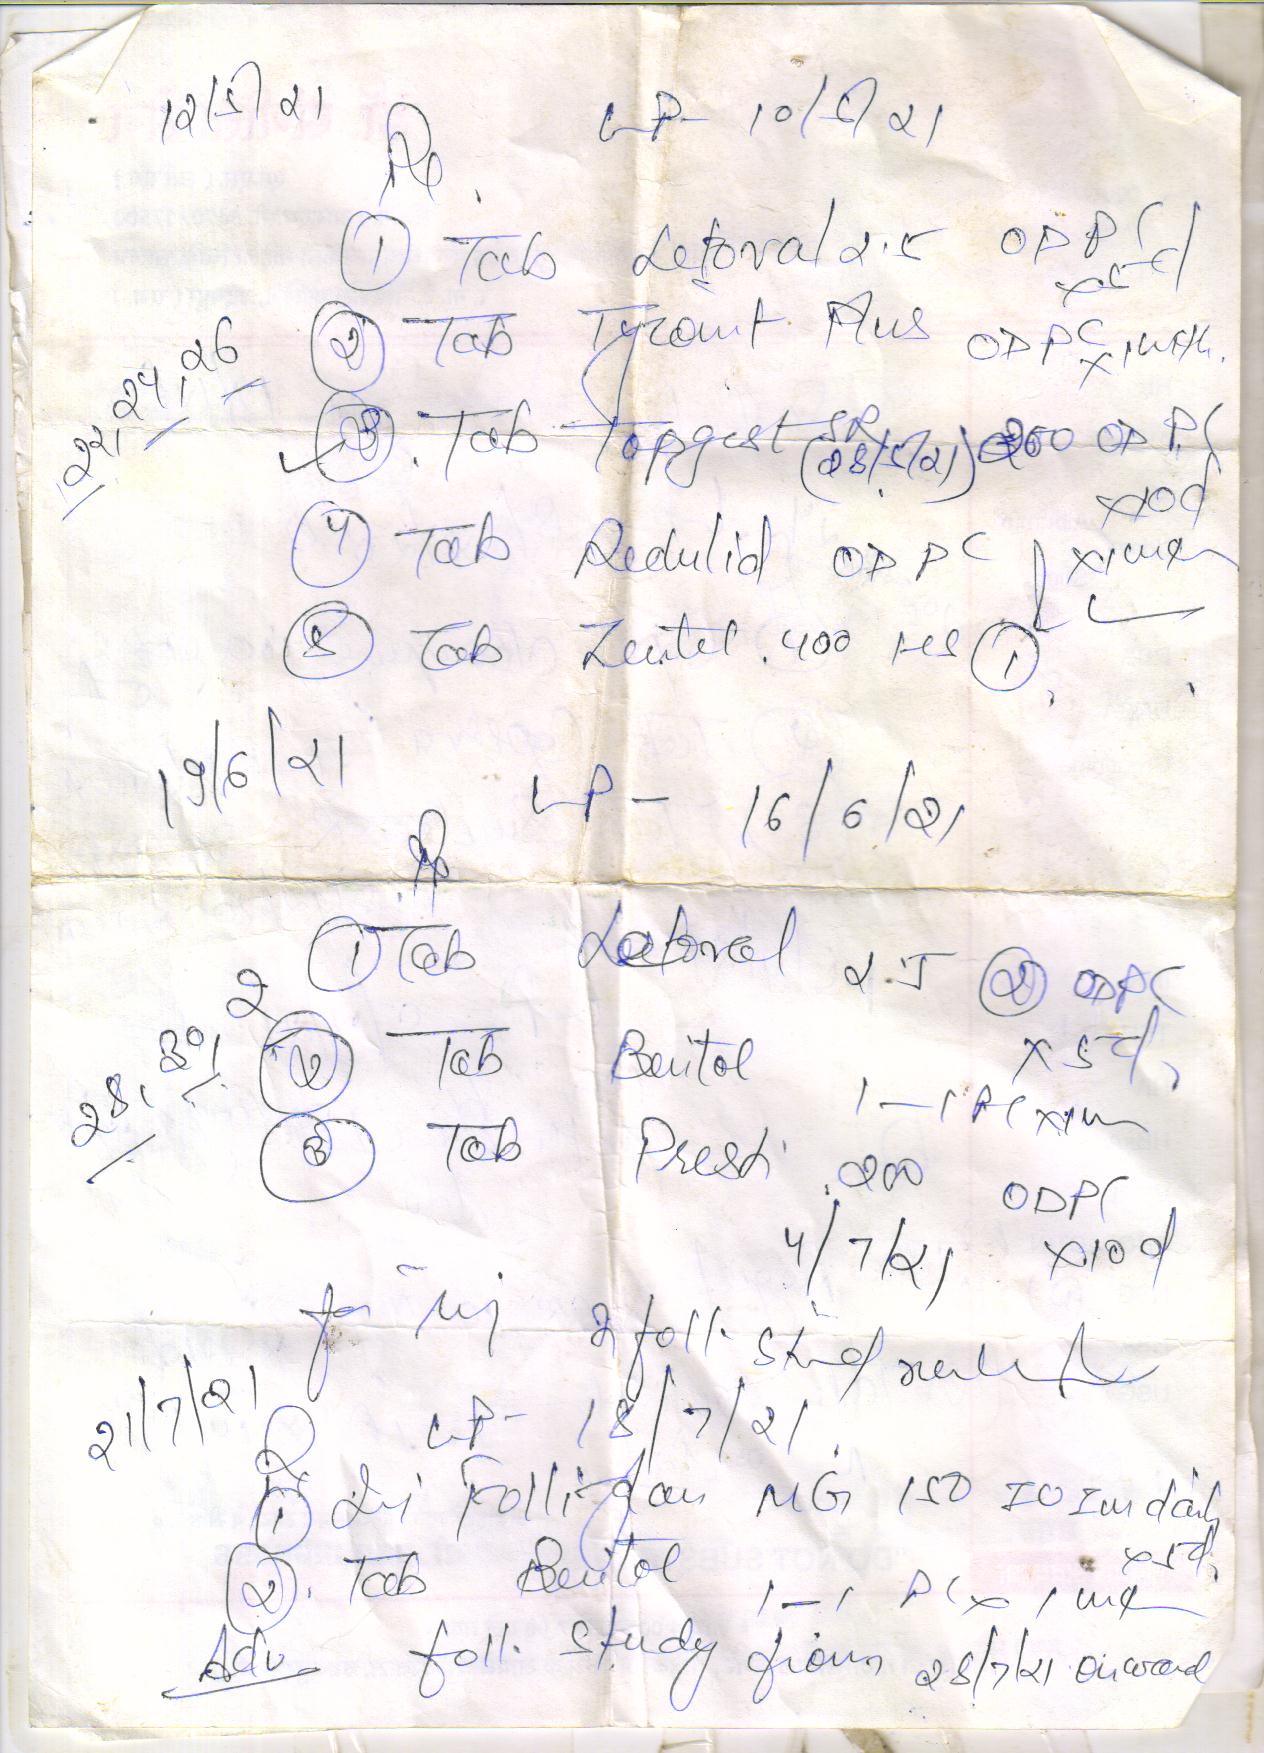 12/5/21 LP- 10/5/21
Rx.
① Tab Letoval 2.5 OD PC x5d
② Tab Tyzomit Plus OD PC x1mth.
22, 24, 26
③ Tab Topgest SR (28/5/21) 200 OD PC x10d
④ Tab Redulid OD PC x1mth
⑤ Tab Zentel. 400 HS ①
19/6/21 LP- 16/6/21
Rx
① Tab Letoval 2.5 ② ODPC x5d,
28, 30, 2
② Tab Benitol 1-1 PC x1m
③ Tab Presti 200 ODPC x10d
4/7/21
for inj & foll. study
21/7/21 LP- 18/7/21.
Rx
① Inj Folligan MG 150 IU Im daily x5d,
②. Tab Benitol 1-1 PC x 1mth
Adv foll. study from 28/7/21 onward